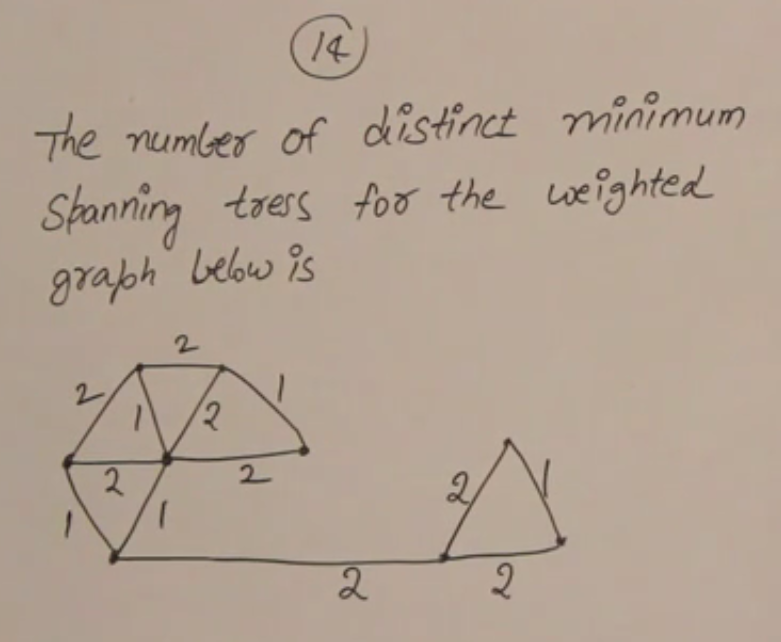 14
The number of distinct minimum
Spanning tress for the weighted
graph below is
2
2 1 2 1
2 2
1 1
2 1
2 2